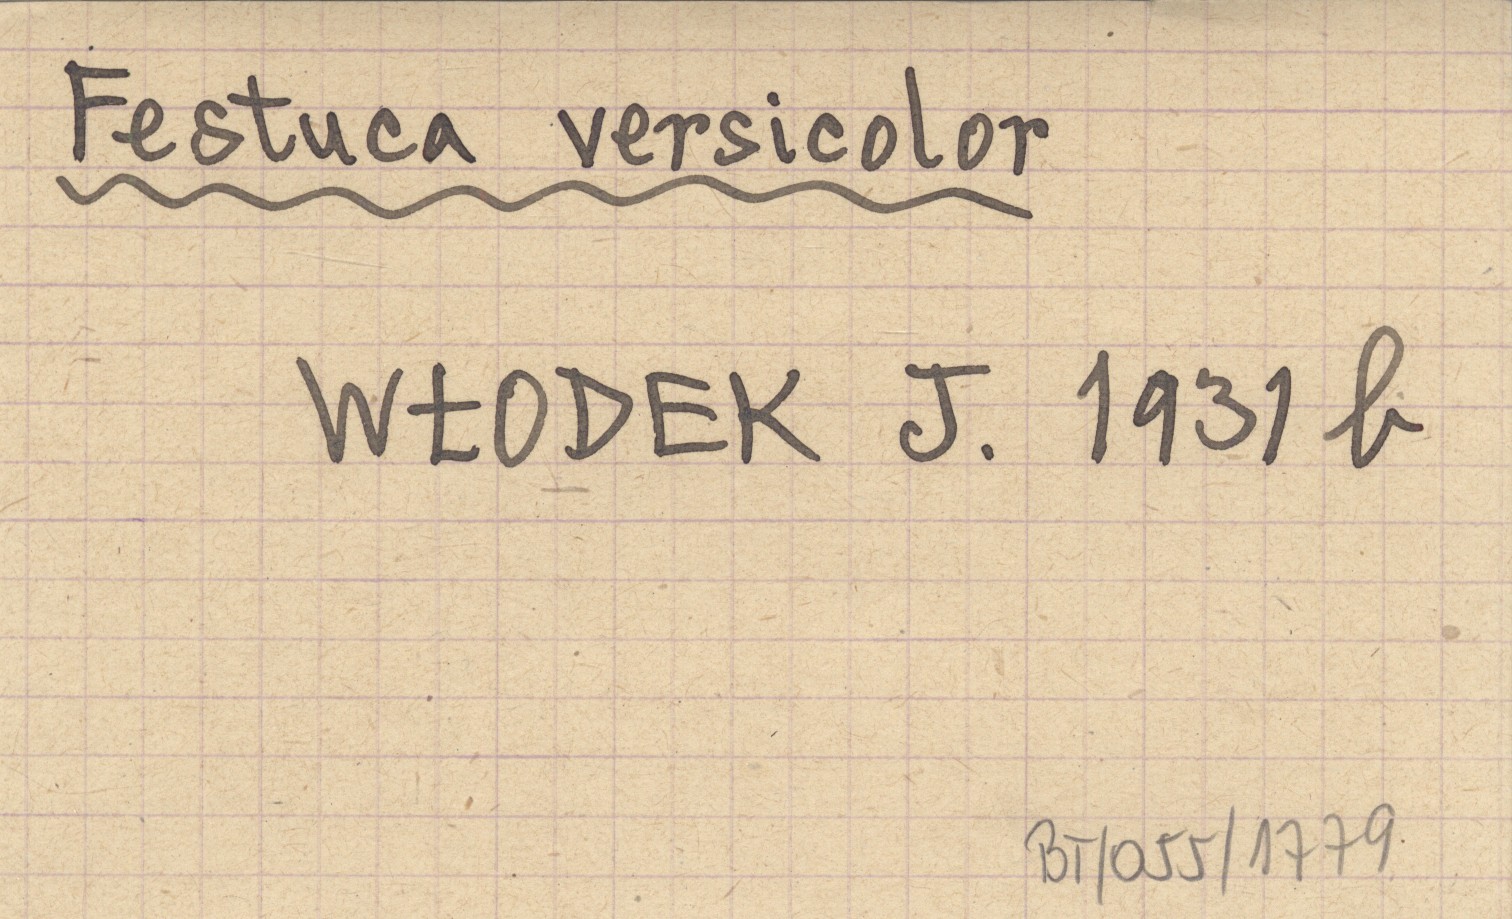 Festuca versicolor
WŁODEK J. 1931 b
BT/055/1779